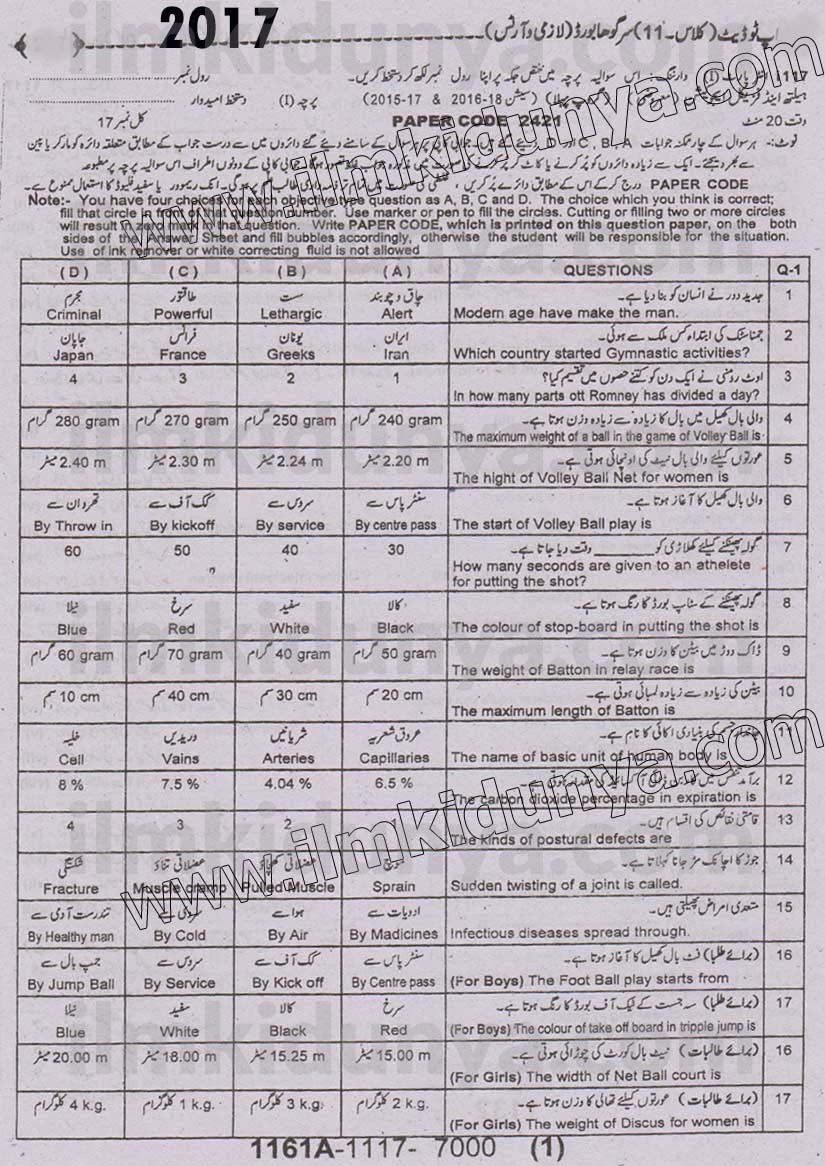 2017
اپ ٹو ڈیٹ (کلاس۔11) سرگودھا بورڈ (لازمی و آرٹس)
1117 انٹر پارٹ (I) وارننگ: اس سوالیہ پرچہ میں مختص جگہ پر اپنا رول نمبر لکھ کر دستخط کریں۔ رول نمبر
ہیلتھ اینڈ فزیکل ایجوکیشن (معروضی) (گروپ پہلا) (سیشن 18-2016 & 17-2015) پرچہ (I) دستخط امیدوار
وقت 20 منٹ PAPER CODE 2421 کل نمبر 17
نوٹ:- ہر سوال کے چار ممکنہ جوابات A، B، C اور D دیئے گئے ہیں۔ جوابی کاپی پر ہر سوال کے سامنے دیئے گئے دائروں میں سے درست جواب کے مطابق متعلقہ دائرہ کو مارکر یا پین
سے بھر دیجئے۔ ایک سے زیادہ دائروں کو پُر کرنے یا کاٹ کر پُر کرنے کی صورت میں مذکورہ جواب غلط تصور ہوگا۔ جوابی کاپی کے دونوں اطراف اس سوالیہ پرچہ پر مطبوعہ
PAPER CODE درج کر کے اس کے مطابق دائرے پُر کریں، غلطی کی صورت میں تمام تر ذمہ داری طالب علم پر ہوگی۔ انک ریموور یا سفید فلیوڈ کا استعمال ممنوع ہے۔
Note:- You have four choices for each objective type question as A, B, C and D. The choice which you think is correct;
fill that circle in front of that question number. Use marker or pen to fill the circles. Cutting or filling two or more circles
will result in zero mark in that question. Write PAPER CODE, which is printed on this question paper, on the both
sides of the Answer Sheet and fill bubbles accordingly, otherwise the student will be responsible for the situation.
Use of ink remover or white correcting fluid is not allowed
( D ) ( C ) ( B ) ( A ) QUESTIONS Q-1
مجرم طاقتور سست چاق و چوبند جدید دور نے انسان کو بنا دیا ہے۔ 1
Criminal Powerful Lethargic Alert Modern age have make the man.
جاپان فرانس یونان ایران جمناسٹک کی ابتداء کس ملک سے ہوئی۔ 2
Japan France Greeks Iran Which country started Gymnastic activities?
4 3 2 1 اوٹ رومنی نے ایک دن کو کتنے حصوں میں تقسیم کیا؟ 3
In how many parts ott Romney has divided a day?
280 gram گرام 270 gram گرام 250 gram گرام 240 gram گرام والی بال کھیل میں بال کا زیادہ سے زیادہ وزن ہوتا ہے۔ 4
The maximum weight of a ball in the game of Volley Ball is
2.40 m میٹر 2.30 m میٹر 2.24 m میٹر 2.20 m میٹر عورتوں کیلئے والی بال نیٹ کی اونچائی ہوتی ہے۔ 5
The hight of Volley Ball Net for women is
تھرو ان سے کک آف سے سروس سے سنٹر پاس سے والی بال کھیل کا آغاز ہوتا ہے۔ 6
By Throw in By kickoff By service By centre pass The start of Volley Ball play is
60 50 40 30 گولہ پھینکنے کیلئے کھلاڑی کو ______ وقت دیا جاتا ہے۔ 7
How many seconds are given to an athelete
for putting the shot?
نیلا سرخ سفید کالا گولہ پھینکنے کے سٹاپ بورڈ کا رنگ ہوتا ہے۔ 8
Blue Red White Black The colour of stop-board in putting the shot is
60 gram گرام 70 gram گرام 40 gram گرام 50 gram گرام ڈاک دوڑ میں بیٹن کا وزن ہوتا ہے۔ 9
The weight of Batton in relay race is
10 cm سم 40 cm سم 30 cm سم 20 cm سم بیٹن کی زیادہ سے زیادہ لمبائی ہوتی ہے۔ 10
The maximum length of Batton is
خلیہ وریدیں شریانیں عروق شعریہ جسم کی بنیادی اکائی کا نام ہے۔ 11
Cell Vains Arteries Capillaries The name of basic unit of human body is
8 % 7.5 % 4.04 % 6.5 % 12
The carbon dioxide percentage in expiration is
4 3 2 1 قامتی نقائص کی اقسام ہیں۔ 13
The kinds of postural defects are
شکستگی عضلاتی تناؤ عضلاتی کھچاؤ موچ جوڑ کا اچانک مڑ جانا کہلاتا ہے۔ 14
Fracture Muscle cramp Pulled Muscle Sprain Sudden twisting of a joint is called.
تندرست آدمی سے سردی سے ہوا سے ادویات سے متعدی امراض پھیلتی ہیں۔ 15
By Healthy man By Cold By Air By Madicines Infectious diseases spread through.
جمپ بال سے سروس سے کک آف سے سنٹر پاس سے (برائے طلبا) فٹ بال کھیل کا آغاز ہوتا ہے۔ 16
By Jump Ball By Service By Kick off By Centre pass (For Boys) The Foot Ball play starts from
نیلا سفید کالا سرخ (برائے طلبا) سہ جست کے ٹیک آف بورڈ کا رنگ ہوتا ہے۔ 17
Blue White Black Red (For Boys) The colour of take off board in tripple jump is
20.00 m میٹر 18.00 m میٹر 15.25 m میٹر 15.00 m میٹر (برائے طالبات) نیٹ بال کورٹ کی چوڑائی ہوتی ہے۔ 16
(For Girls) The width of Net Ball court is
4 k.g. کلوگرام 1 k.g. کلوگرام 3 k.g. کلوگرام 2 k.g. کلوگرام (برائے طالبات) عورتوں کیلئے تھالی کا وزن ہوتا ہے۔ 17
(For Girls) The weight of Discus for women is
1161A-1117- 7000 (1)
www.ilmkidunya.com
www.ilmkidunya.com